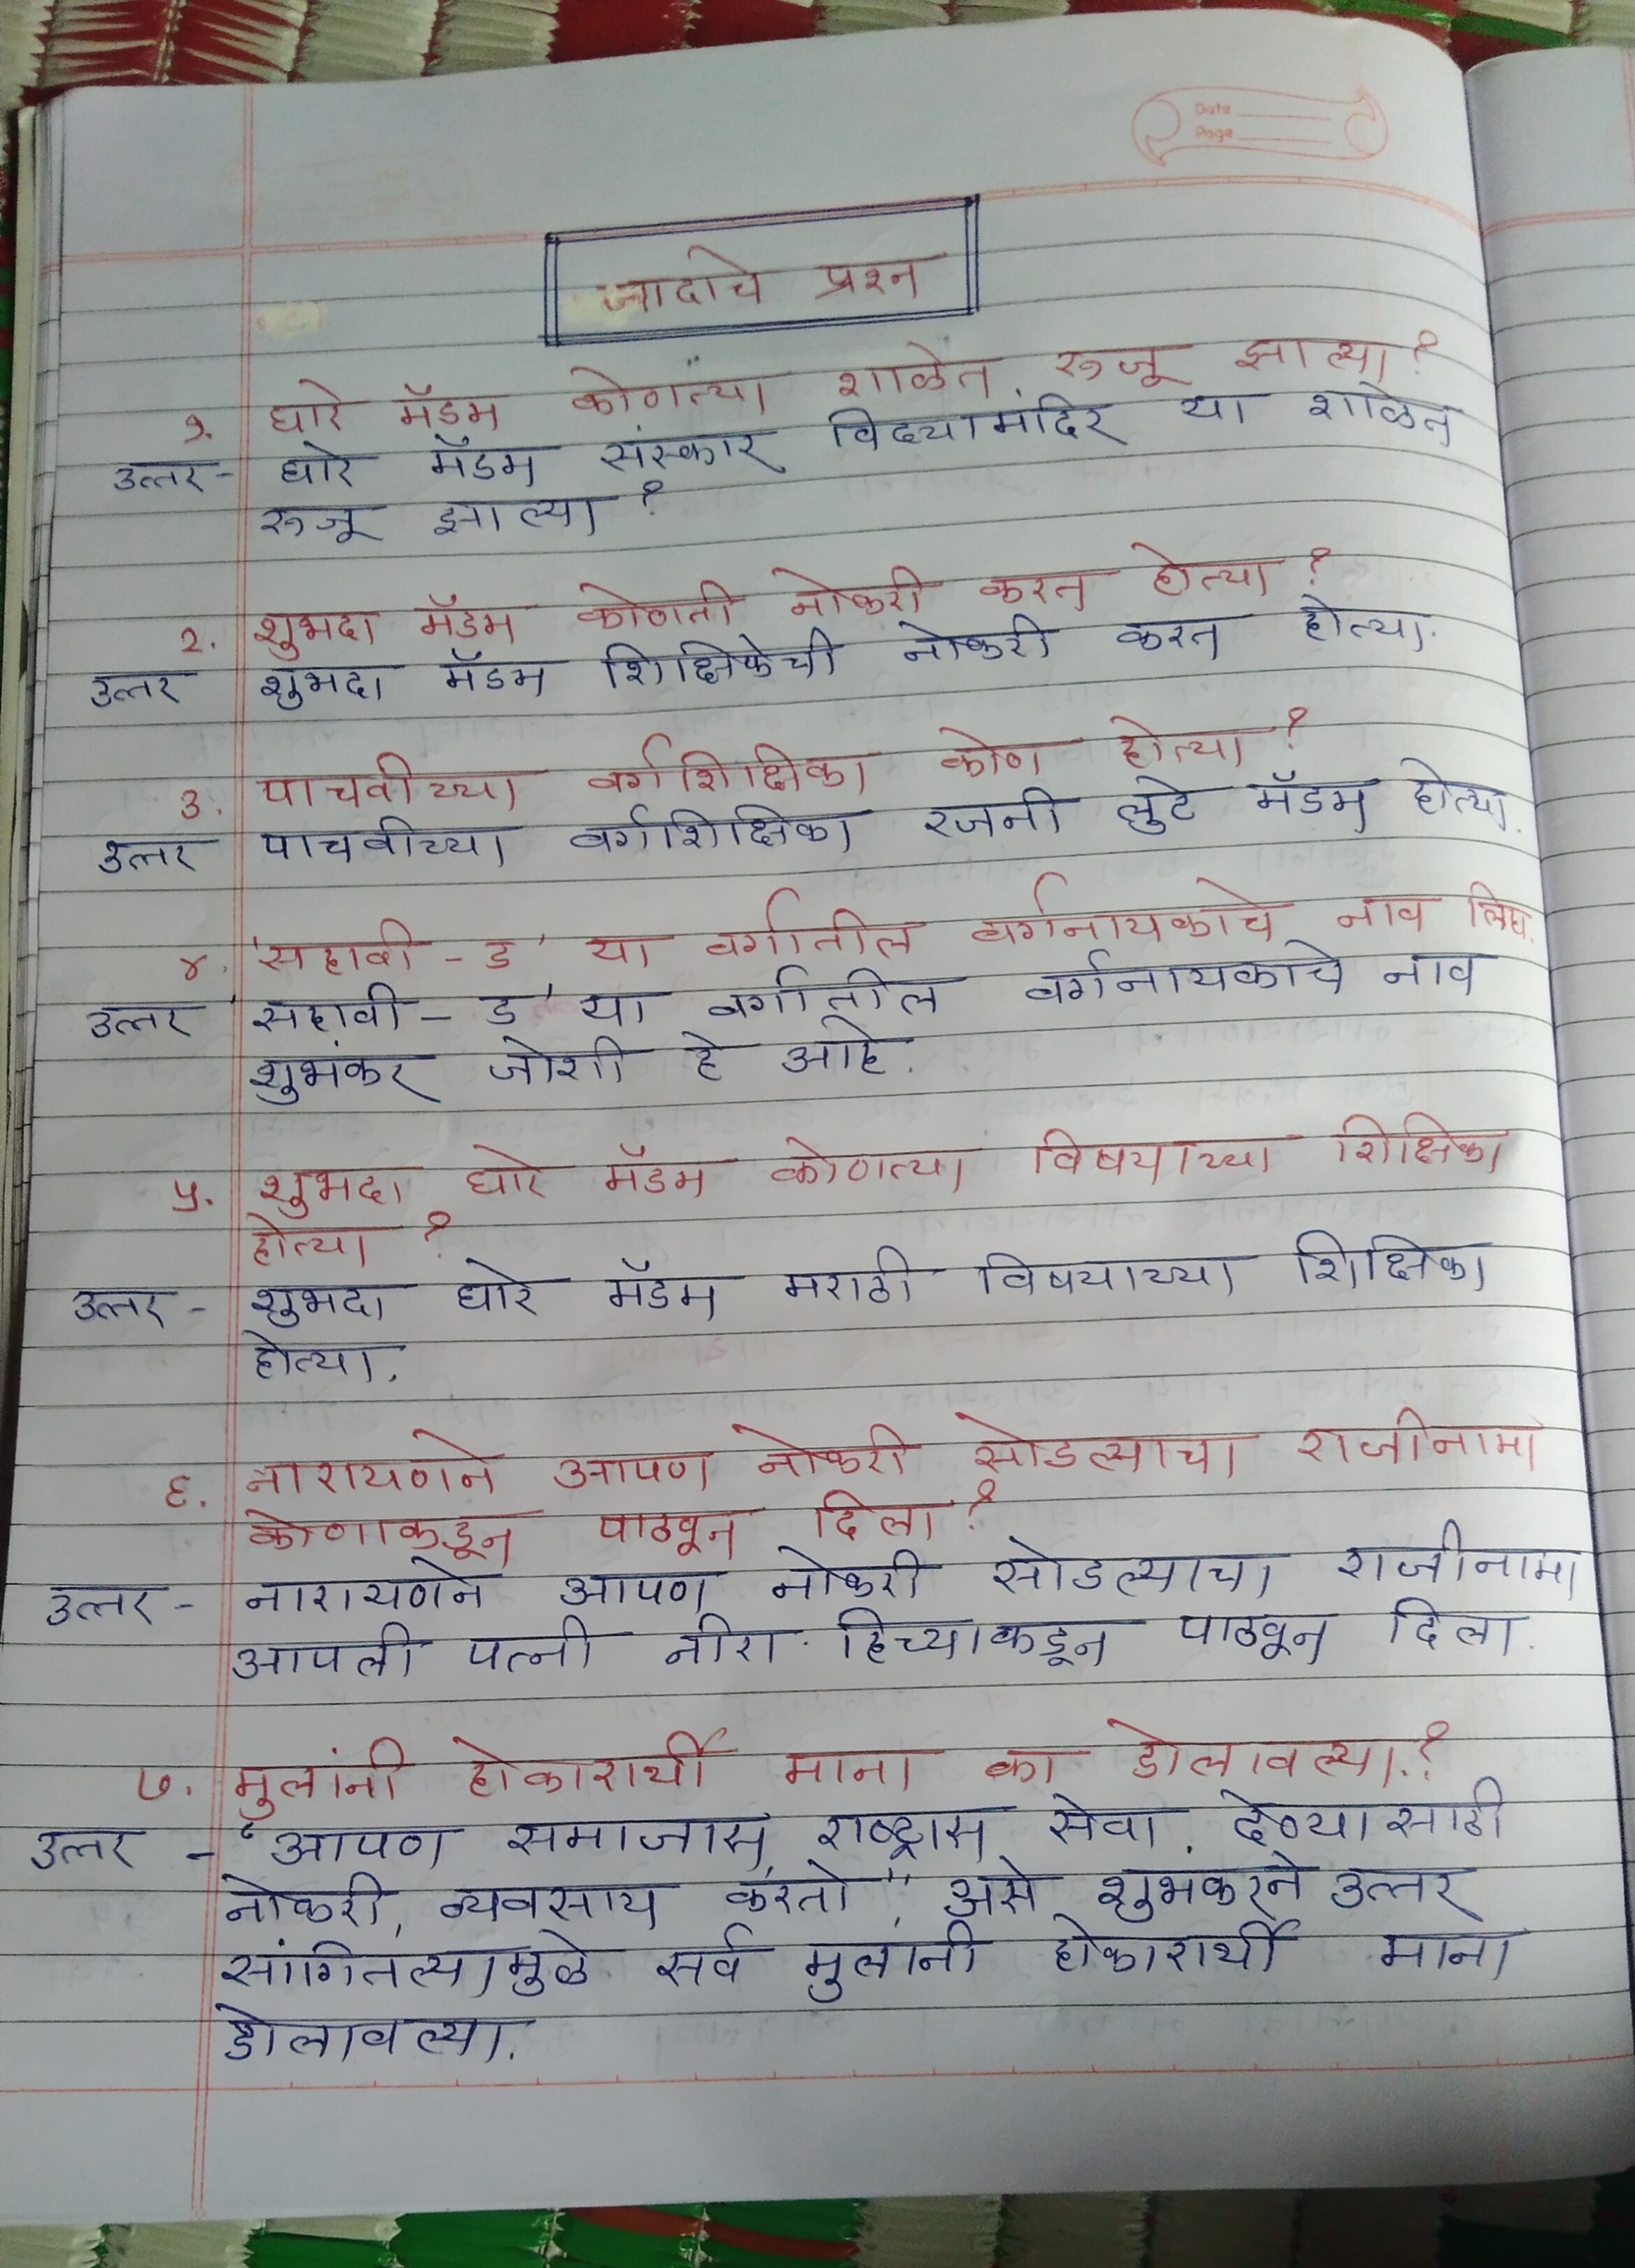 Date
Page
जादाचे प्रश्न
१. घारे मॅडम कोणत्या शाळेत रुजू झाल्या?
उत्तर- घारे मॅडम संस्कार विद्यामंदिर या शाळेत
रुजू झाल्या?
२. शुभदा मॅडम कोणती नोकरी करत होत्या?
उत्तर शुभदा मॅडम शिक्षिकेची नोकरी करत होत्या.
३. पाचवीच्या वर्गशिक्षिका कोण होत्या?
उत्तर पाचवीच्या वर्गशिक्षिका रजनी लुटे मॅडम होत्या.
४. 'सहावी - ड' या वर्गातील वर्गनायकाचे नाव लिहा.
उत्तर 'सहावी - ड' या वर्गातील वर्गनायकाचे नाव
शुभंकर जोशी हे आहे.
५. शुभदा घारे मॅडम कोणत्या विषयाच्या शिक्षिका
होत्या?
उत्तर - शुभदा घारे मॅडम मराठी विषयाच्या शिक्षिका
होत्या.
६. नारायणने आपण नोकरी सोडल्याचा राजीनामा
कोणाकडून पाठवून दिला?
उत्तर - नारायणने आपण नोकरी सोडल्याचा राजीनामा
आपली पत्नी नीरा हिच्याकडून पाठवून दिला.
७. मुलांनी होकारार्थी माना का डोलावल्या?
उत्तर - "आपण समाजास, राष्ट्रास सेवा देण्यासाठी
नोकरी, व्यवसाय करतो", असे शुभंकरने उत्तर
सांगितल्यामुळे सर्व मुलांनी होकारार्थी माना
डोलावल्या.